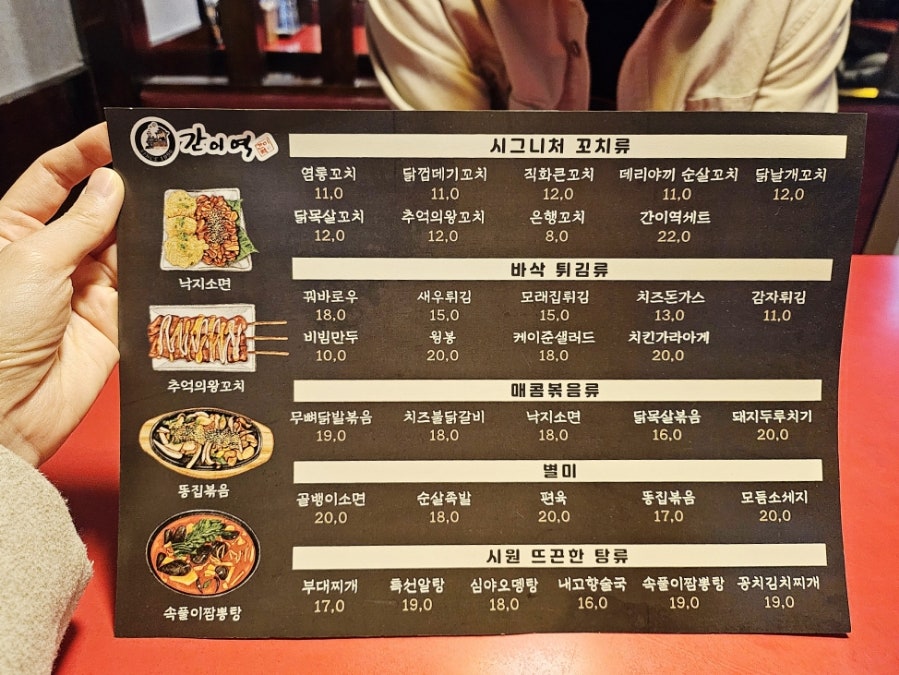 간이역
시그니처 꼬치류
염통꼬치 닭껍데기꼬치 직화큰꼬치 데리야끼 순살꼬치 닭날개꼬치
11,0 11,0 12,0 11,0 12,0
닭목살꼬치 추억의왕꼬치 은행꼬치 간이역세트
12,0 12,0 8,0 22,0
바삭 튀김류
꿔바로우 새우튀김 모래집튀김 치즈돈가스 감자튀김
18,0 15,0 15,0 13,0 11,0
비빔만두 윙봉 케이준샐러드 치킨가라아게
10,0 20,0 18,0 20,0
매콤볶음류
무뼈닭발볶음 치즈불닭갈비 낙지소면 닭목살볶음 돼지두루치기
19,0 18,0 18,0 16,0 20,0
별미
골뱅이소면 순살족발 편육 똥집볶음 모듬소세지
20,0 18,0 20,0 17,0 20,0
시원 뜨끈한 탕류
부대찌개 특선알탕 심야오뎅탕 내고향술국 속풀이짬뽕탕 꽁치김치찌개
17,0 19,0 18,0 16,0 19,0 19,0
낙지소면
추억의왕꼬치
똥집볶음
속풀이짬뽕탕